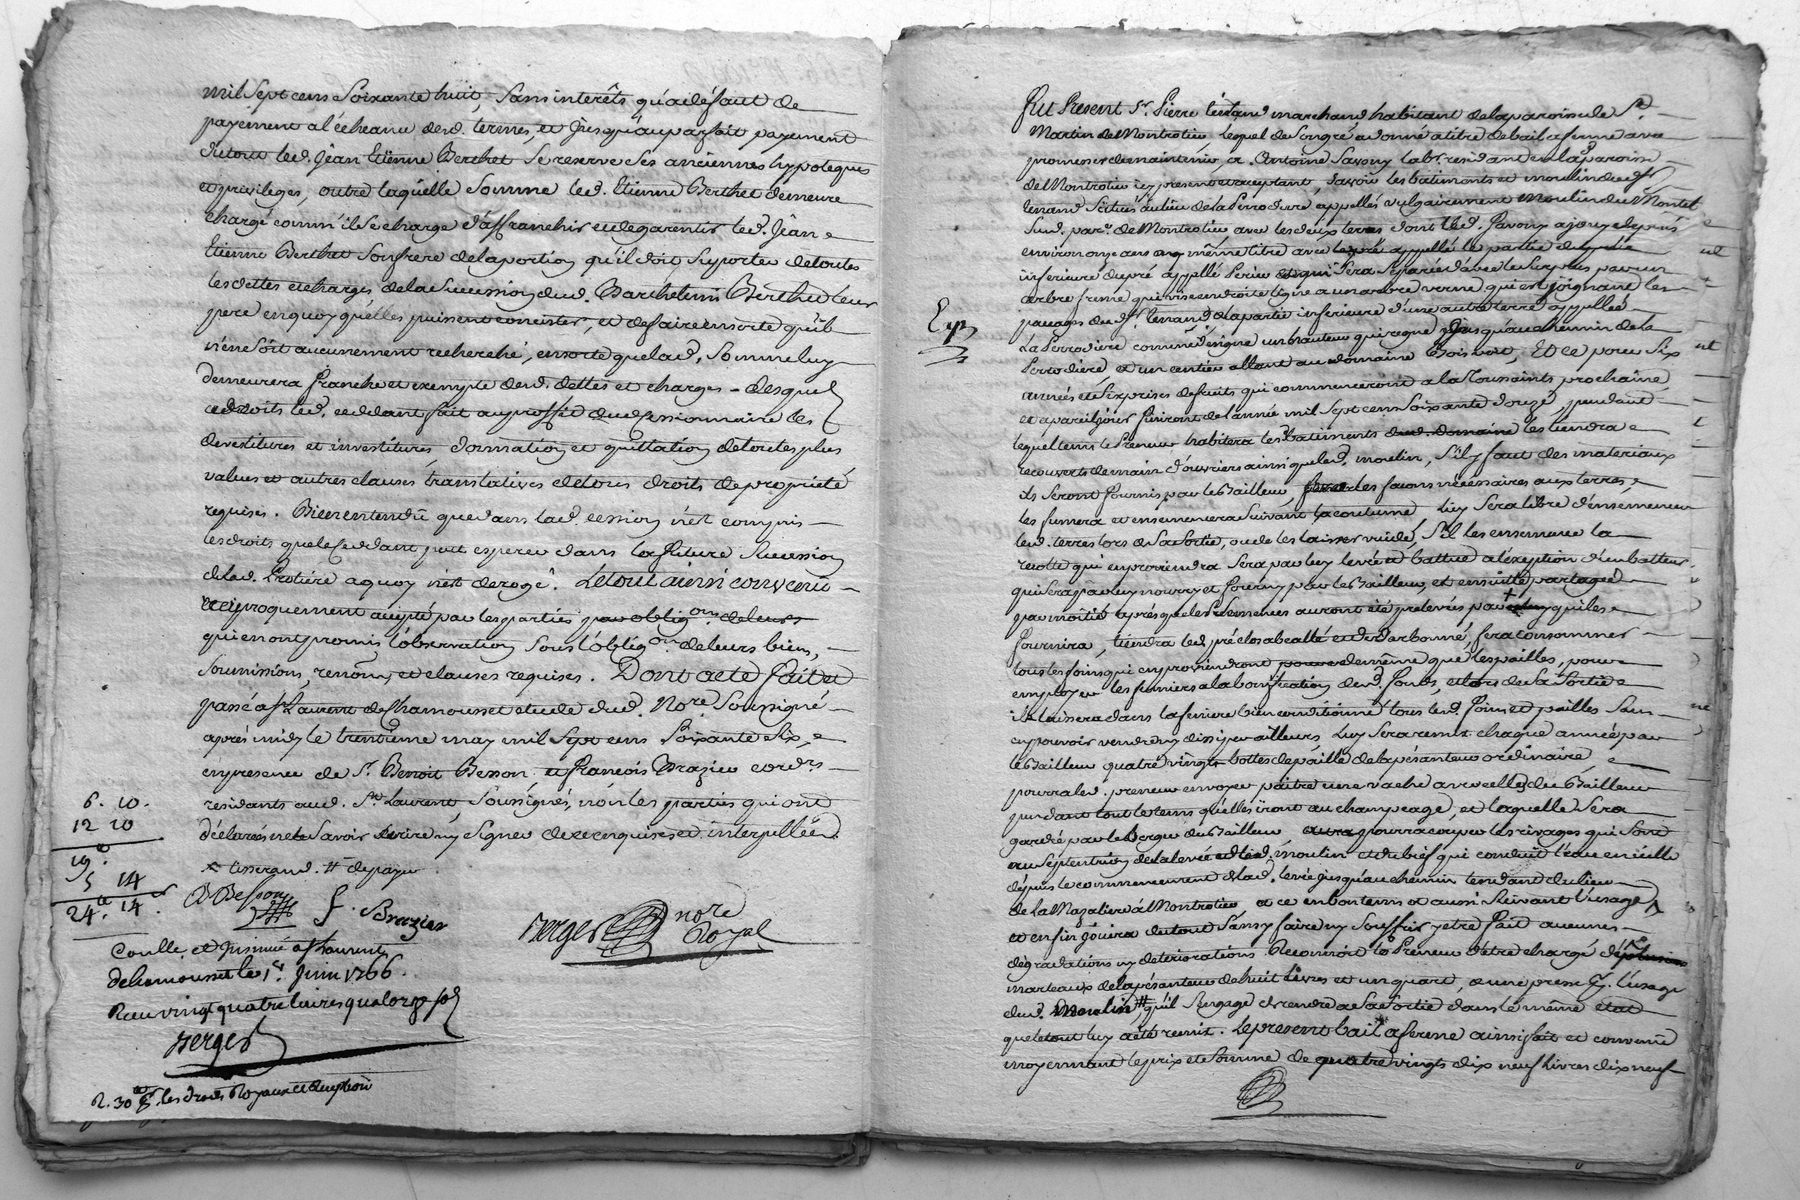 mil Sept cens Soixante huit, Sans interêts qu'a deffaut de
payement a l'echeance desd. termes, et jusqu'au parfait payement
du tout led. Jean Etienne Berthet Se reserve Ses anciennes hypoteques
et privileges, outre laquelle Somme led. Etienne Berthet demeure
chargé comm'il Se charge d'affranchir et de garentir led. Jean
Etienne Berthet Son frere de la portion qu'il doit Suporter de toutes
les dettes et charges de la Succession dud. Barthelemi Berthet leur
pere en quoy qu'elles puissent consister, et de faire ensorte qu'il
n'en Soit aucunement recherché, ensorte que lad. Somme luy
demeurera franche et exempte desd. dettes et charges - Desquels
droits led. ceddant fait au proffit dud. Cessionnaire les
devestitures et investitures, donnation et quittation de toutes plus
values et autres clauses translatives de tous droits de proprieté
requises. Bien entendu que dans lad. cession n'est compris
les droits que le Ceddant peut esperer dans la future Succession
de lad. a quoy n'est derogé. Le tout ainsi convenu
reciproquement accepté par les parties par oblig.on de leurs
qui en ont promis l'observation Sous l'oblig.on de leurs biens,
Soumissions, renon.ns et clauses requises. Dont acte Fait et
passé a St Laurent de Chamousset etude dud. No.re Soussigné
après midy le trentieme may mil Sept cens Soixante Six,
en presence de Sr. Benoit Besson, et François Brazier cord.rs
residants aud. St Laurent Soussignés, non les parties qui ont
déclaré ne Savoir écrire ny Signer de ce enquises et interpellées.
tisserand. # de payer
6. 10.
12 10
19.
5 14
24. 14.
B Besson
F. Brazier
Berger nore Royal
Conllé. et Insinué a St Laurent
de Chamousset le 1er. Juin 1766.
Reçu vingt quatre livres quatorze sols
Berger
R. 30 les droits Royaux et
Fut Present Sr. Pierre marchand habitant de la paroisse de St.
Martin de Montrotier, lequel de Son gré a donné a titre de bail a ferme avec
promesse de maintenir, a Antoine Savoy lab.r residant en lad. paroisse
de Montrotier icy present et acceptant, Savoir les batiments et moulin dud. Sr
Situés au lieu de la Perrodiere appellés vulgairement moulin du Montel
Susd. par.e de Montrotier avec les deux terres dont led. Savoy a jouy depuis
environ onze ans au même titre avec le pré appellé la partie
inferieure du pré appellé Perier et qui Sera Séparée d'avec le Surplus par un
arbre frene qui vise en droite ligne a un arbre verne qui est joignant les
passages dud. Sr. de la partie inferieure d'une autre terre appellée
La Perrodiere comme designe une hauteur qui regne jusqu'au chemin de la
Perrodiere, et un sentier allant au domaine Et ce pour Six
Exp.
années et Six prises de fruits qui commenceront a la Toussaints prochaine
et a pareil jour finiront de l'année mil Sept cens Soixante douze, pendant
lequel tems le Preneur habitera les batiments dud. domaine les tiendra
recouverts de main d'ouvriers ainsi que led. moulin, S'il y faut des materiaux
ils Seront fournis par le Bailleur, fera les façons necessaires aux terres,
les fumera et ensemencera Suivant la coutume Luy Sera libre d'ensemencer
led. terres lors de Sa Sortie, ou de les laisser vuides, S'il les ensemence la
recolte qui en proviendra Sera par luy levée et battue a l'exception d'un batteur
qui Sera par luy nourry et fourny par le Bailleur, et ensuitte partagée
par moitié après que les Semences auront été prelevées par qui les
fournira, tiendra led. pré clos a bealté fera consommer
tous les foins qui en proviendront de même que les pailles, pour
employer les fumiers a la bonification desd. fonds, et lors de Sa Sortie
il laissera dans la feniere bien conditionné tous led. foins et pailles Sans
en pouvoir vendre ny dissiper ailleurs Luy Sera remis chaque année par
le Bailleur quatre vingts bottes de paille de la pesanteur ordinaire
pourra led. preneur envoyer paitre une vache avec celles du Bailleur
pendant tout le tems qu'elles iront au champeage, et laquelle Sera
gardée par le Berger du Bailleur pourra couper les rivages qui Sont
au Septentrion de la levée dud. moulin et du bief qui conduit l'eau en icelle
depuis le commencement de lad. levée jusqu'au chemin tendant du lieu
de la Mazaliere à Montrotier et ce en bon tems et aussi Suivant l'usage
et enfin joüira du tout Sans y faire ny Souffrir y être fait aucunes
degradations ny deteriorations Reconnoit le Preneur d'être chargé de
marteaux de la pesanteur de huit livres et un quart, a l'usage
dud. Moulin # qu'il S'engage de rendre a Sa Sortie dans le même etat
que le tout luy a été remis. Le present bail a ferme ainsi fait et convenu
moyennant le prix et Somme de quatre vingts dix neuf livres dix neuf